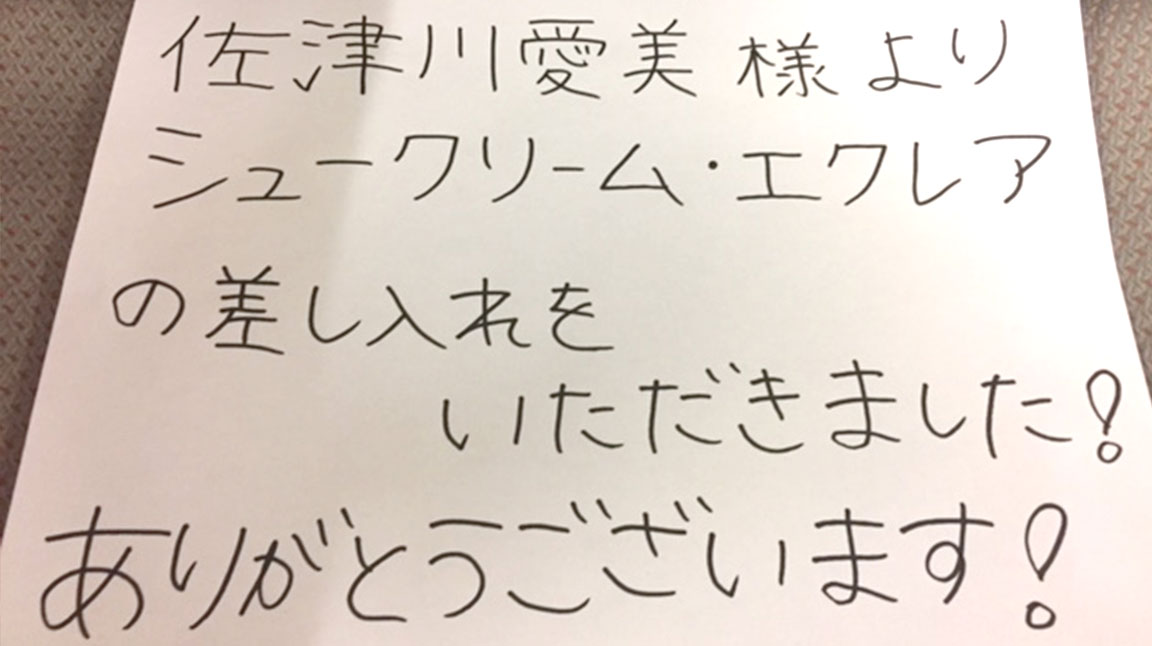 佐津川愛美様より
シュークリーム・エクレア
の差し入れを
いただきました!
ありがとうございます!